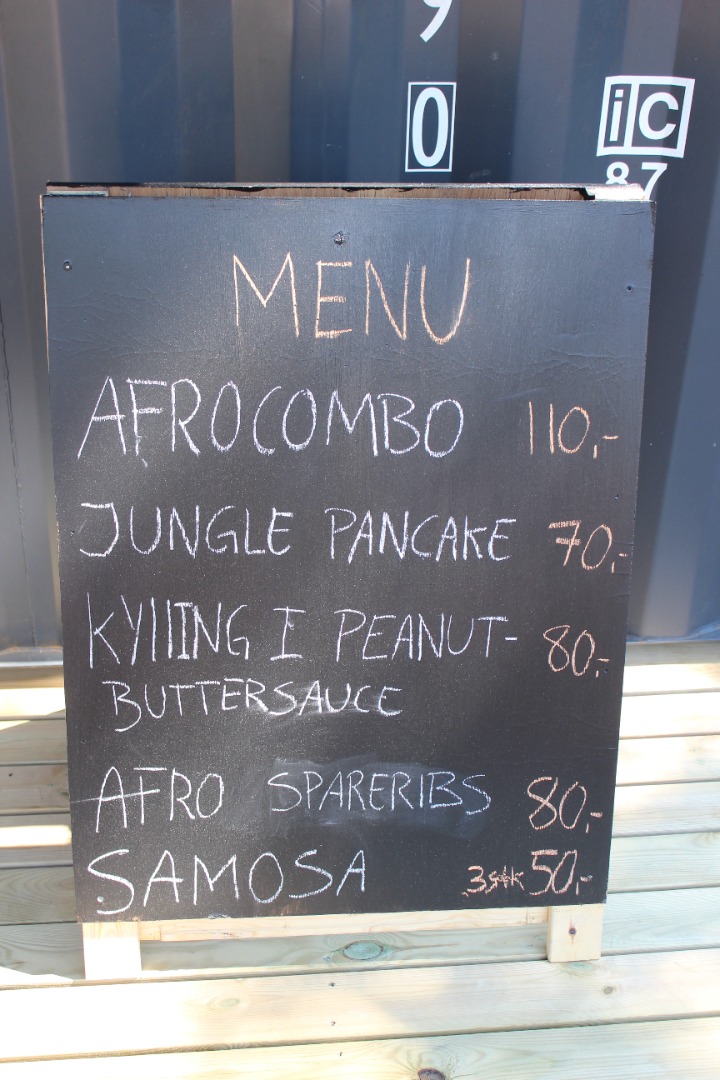 9
0
iC
87
MENU
AFROCOMBO 110,-
JUNGLE PANCAKE 70,-
KYLLING I PEANUT- 80,-
BUTTERSAUCE
AFRO SPARERIBS 80,-
SAMOSA 3 stk 50,-